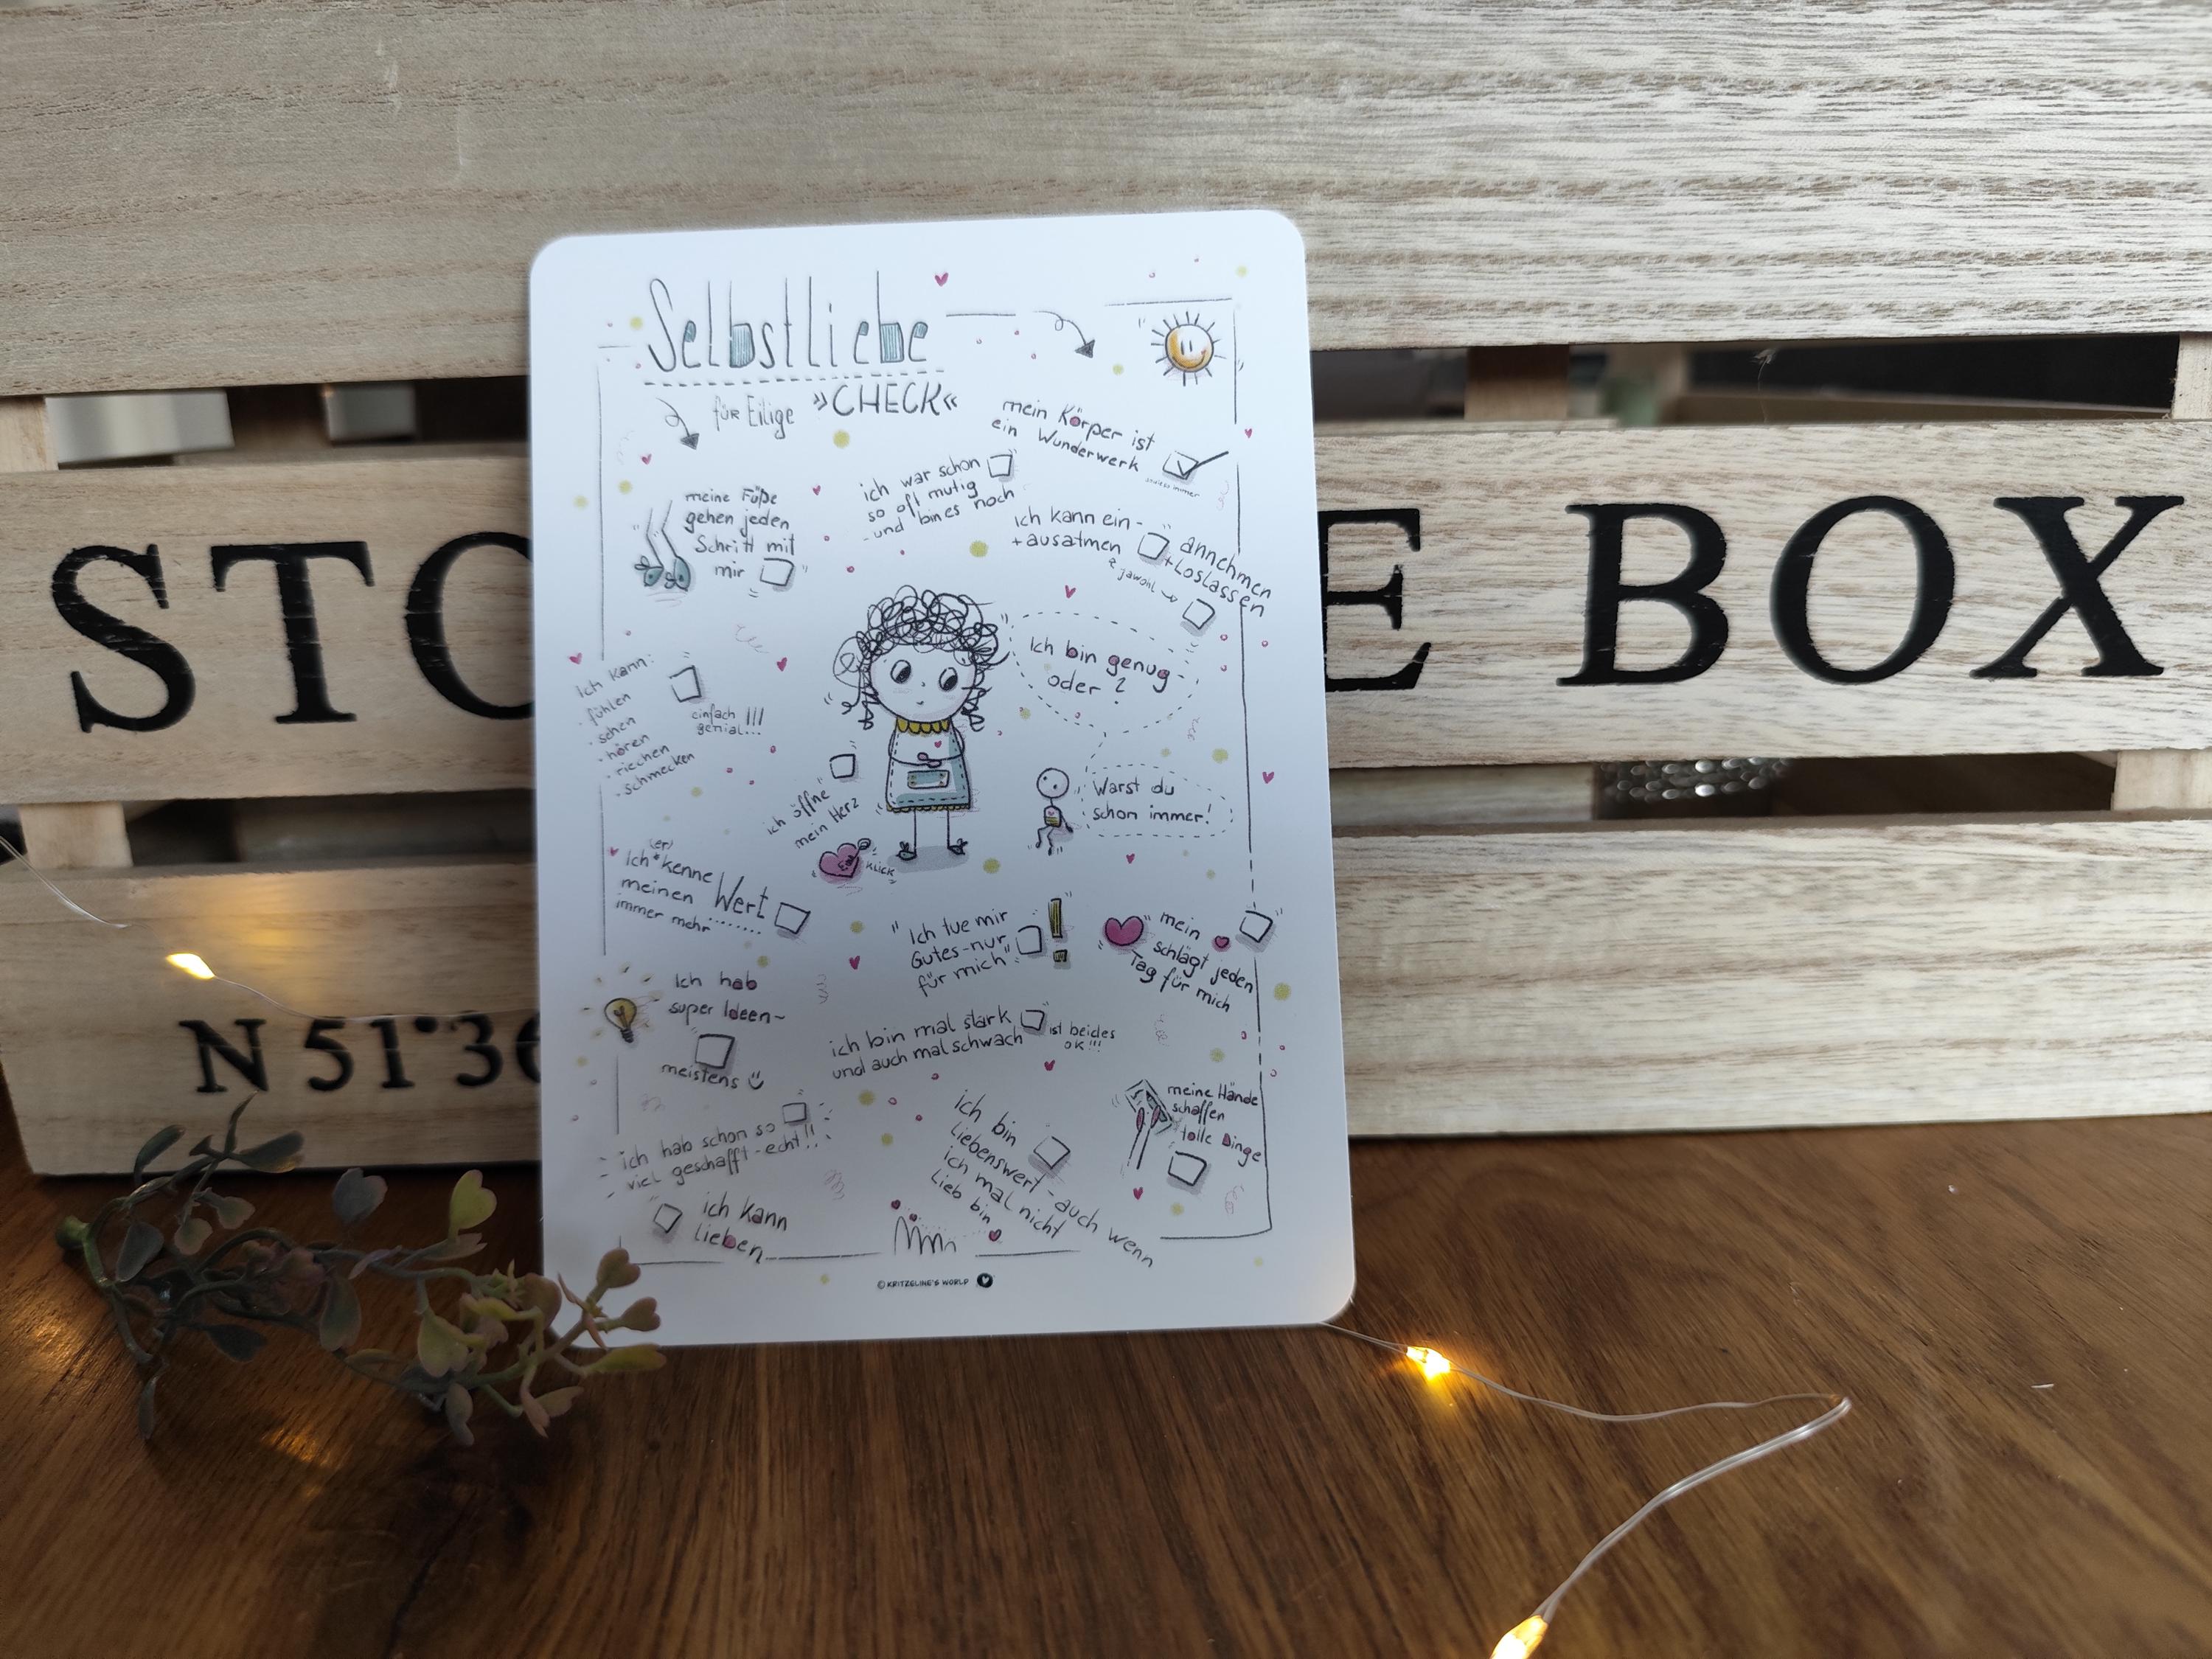 Selbstliebe
für Eilige »CHECK«
mein Körper ist
ein Wunderwerk
ich war schon
so oft mutig
- und bin es noch
meine Füße
gehen jeden
Schritt mit
mir
ich kann ein-
+ ausatmen
annehmen
+ Loslassen
jawohl
Ich bin genug
oder ?
Warst du
schon immer!
ich kann:
· fühlen
· sehen
· hören
· riechen
· schmecken
einfach
genial...!!!
ich öffne
mein Herz
KLICK
(er)
Ich*kenne
meinen Wert
immer mehr ........
"Ich tue mir
Gutes-nur
für mich"
!
mein ♥
schlägt jeden
Tag für mich
Ich hab
super Ideen~
meistens
ich bin mal stark
und auch mal schwach
ist beides
OK!!!
ich hab schon so
viel geschafft - echt!!
ich kann
lieben
ich bin
Liebenswert - auch wenn
ich mal nicht
Lieb bin
meine Hände
schaffen
tolle Dinge
© KRITZELINE'S WORLD
STO
E BOX
N 51°36